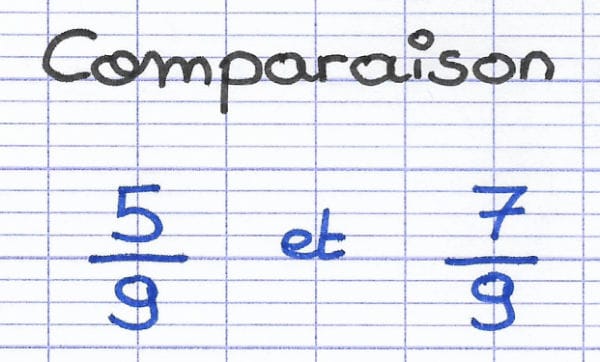 Comparaison
5/9 et 7/9